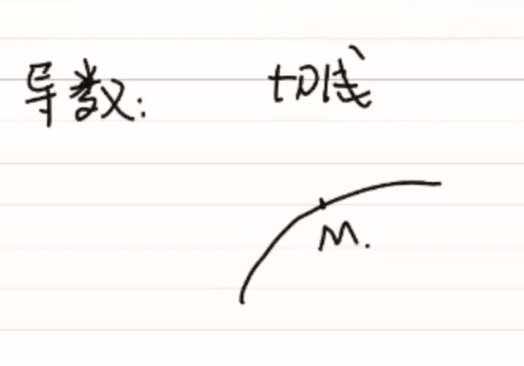 导数: 切线
M.